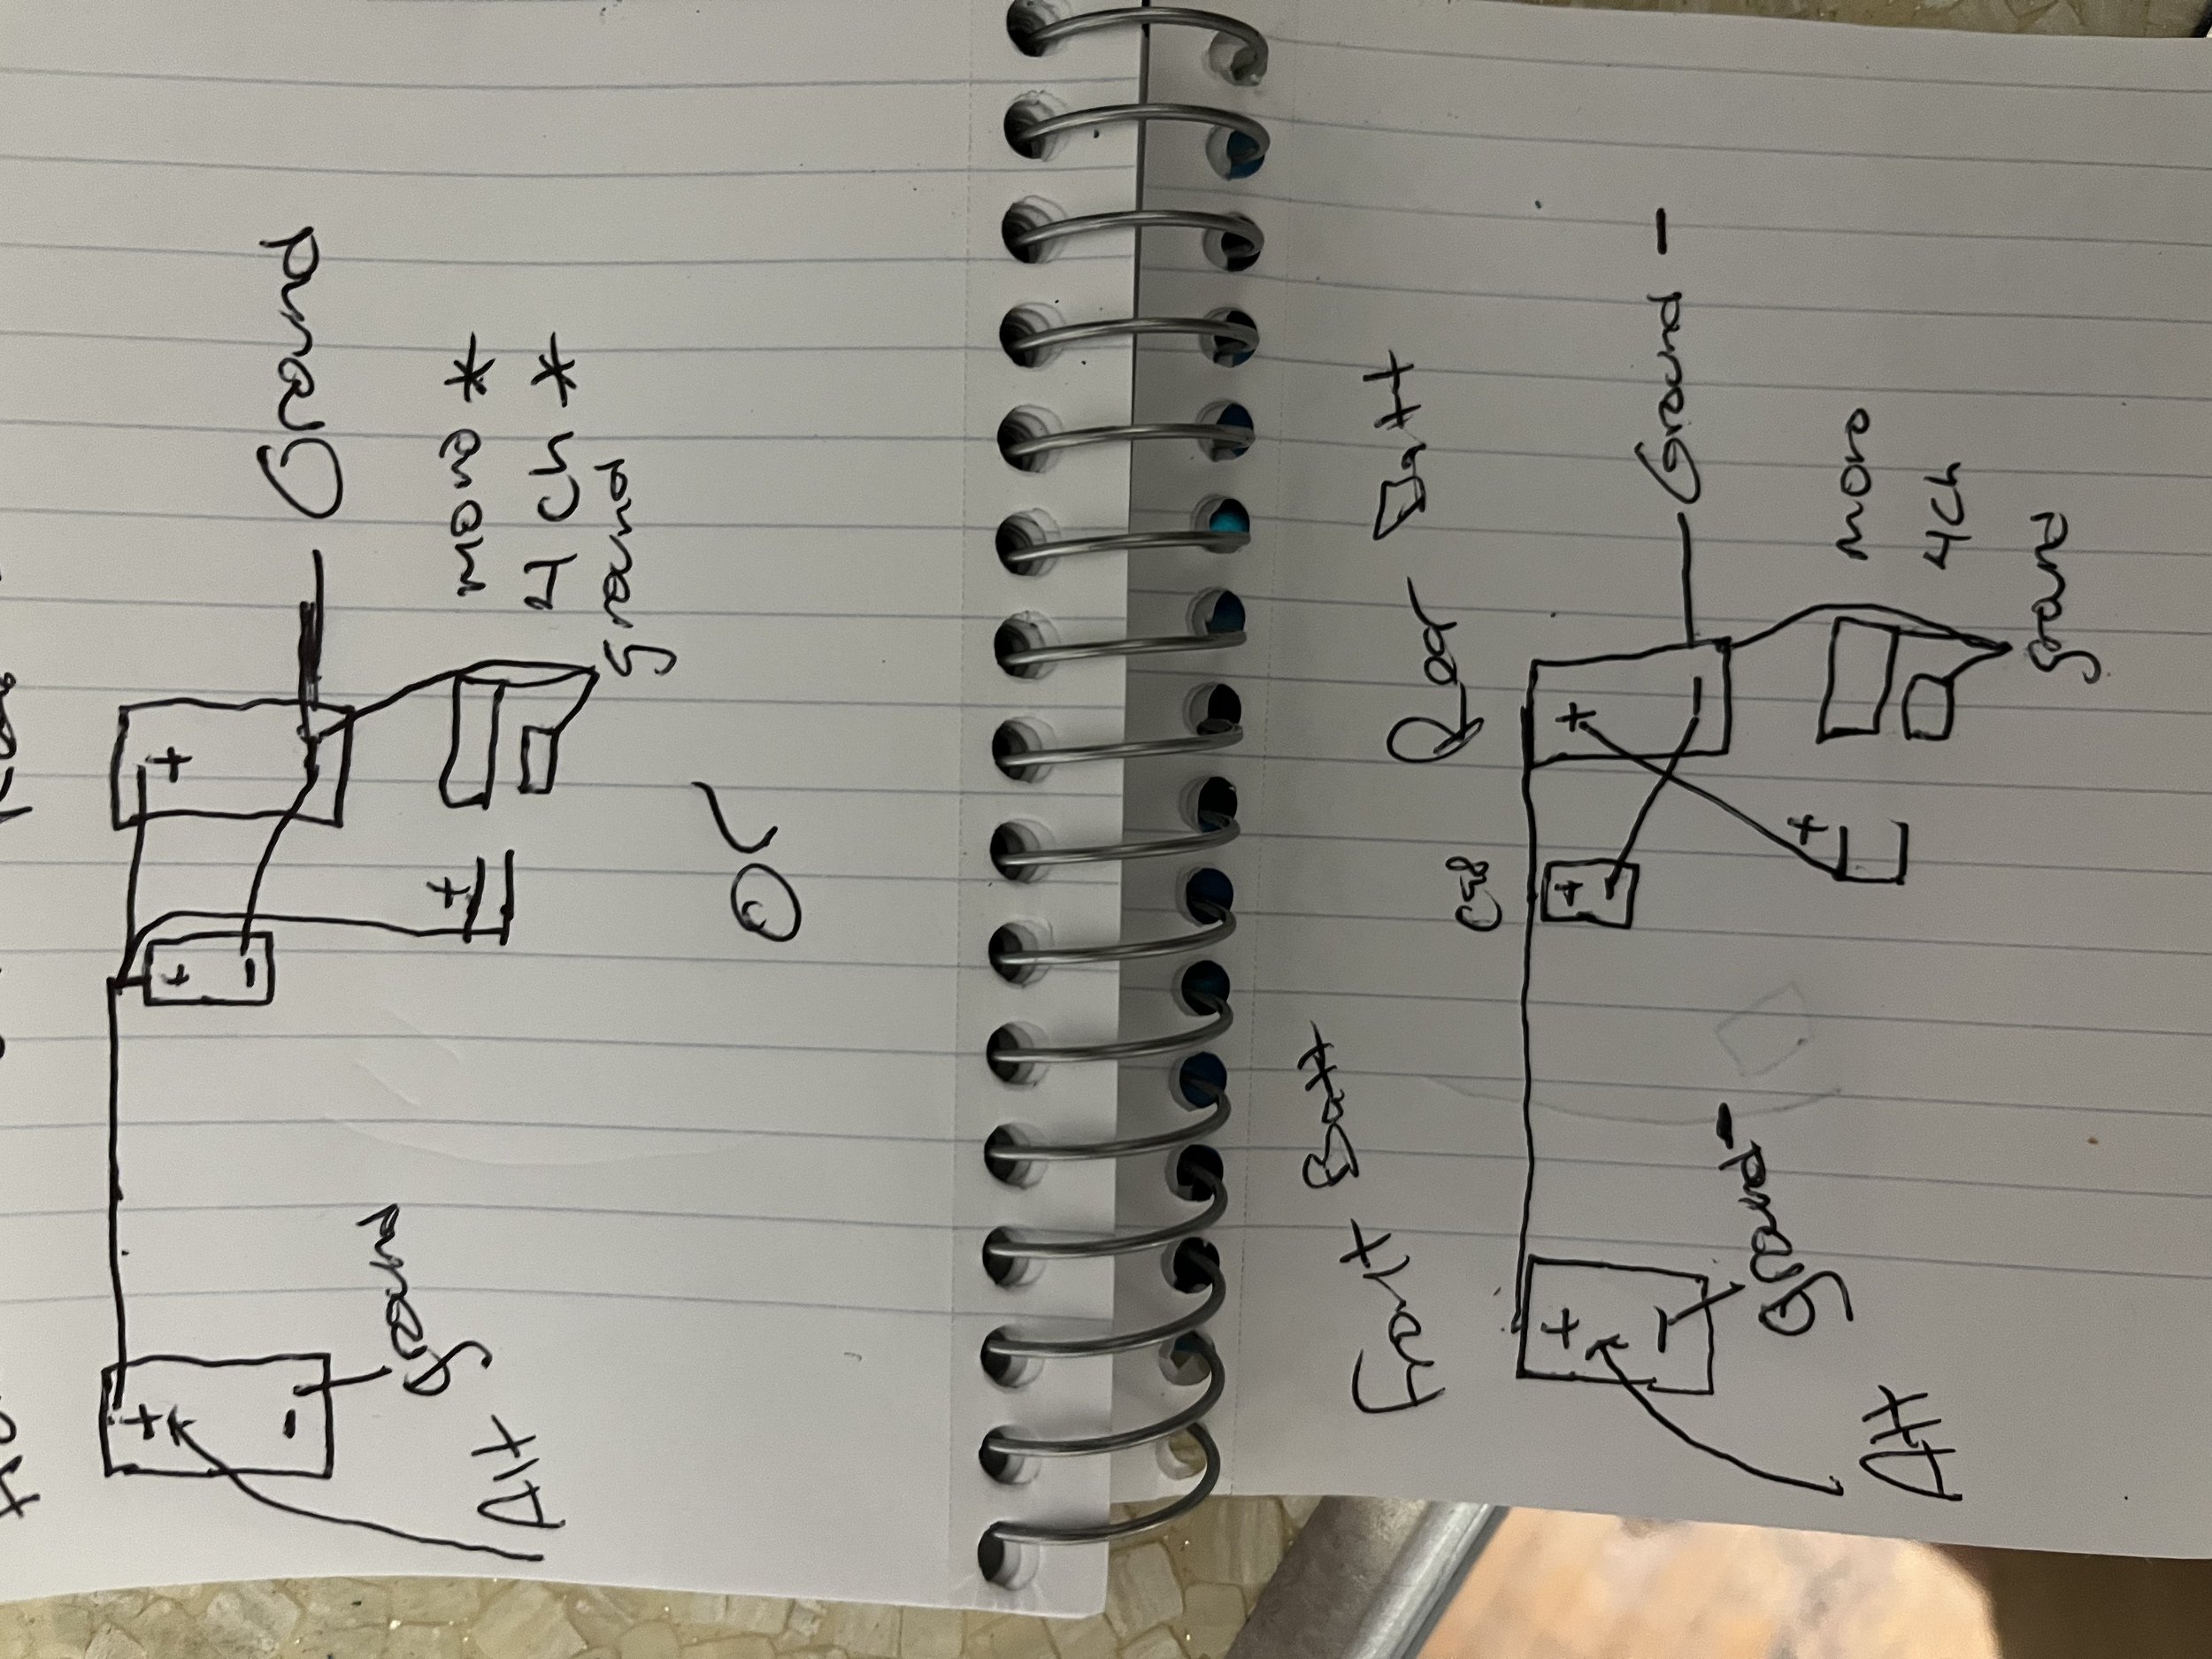 Ground
+
mono *
4 Ch *
ground
+
+
-
ground
+
-
Alt
or
Rear Batt
Ground -
+
-
mono
4Ch
ground
cap
+
-
+
Front Batt
+
-
ground -
Alt